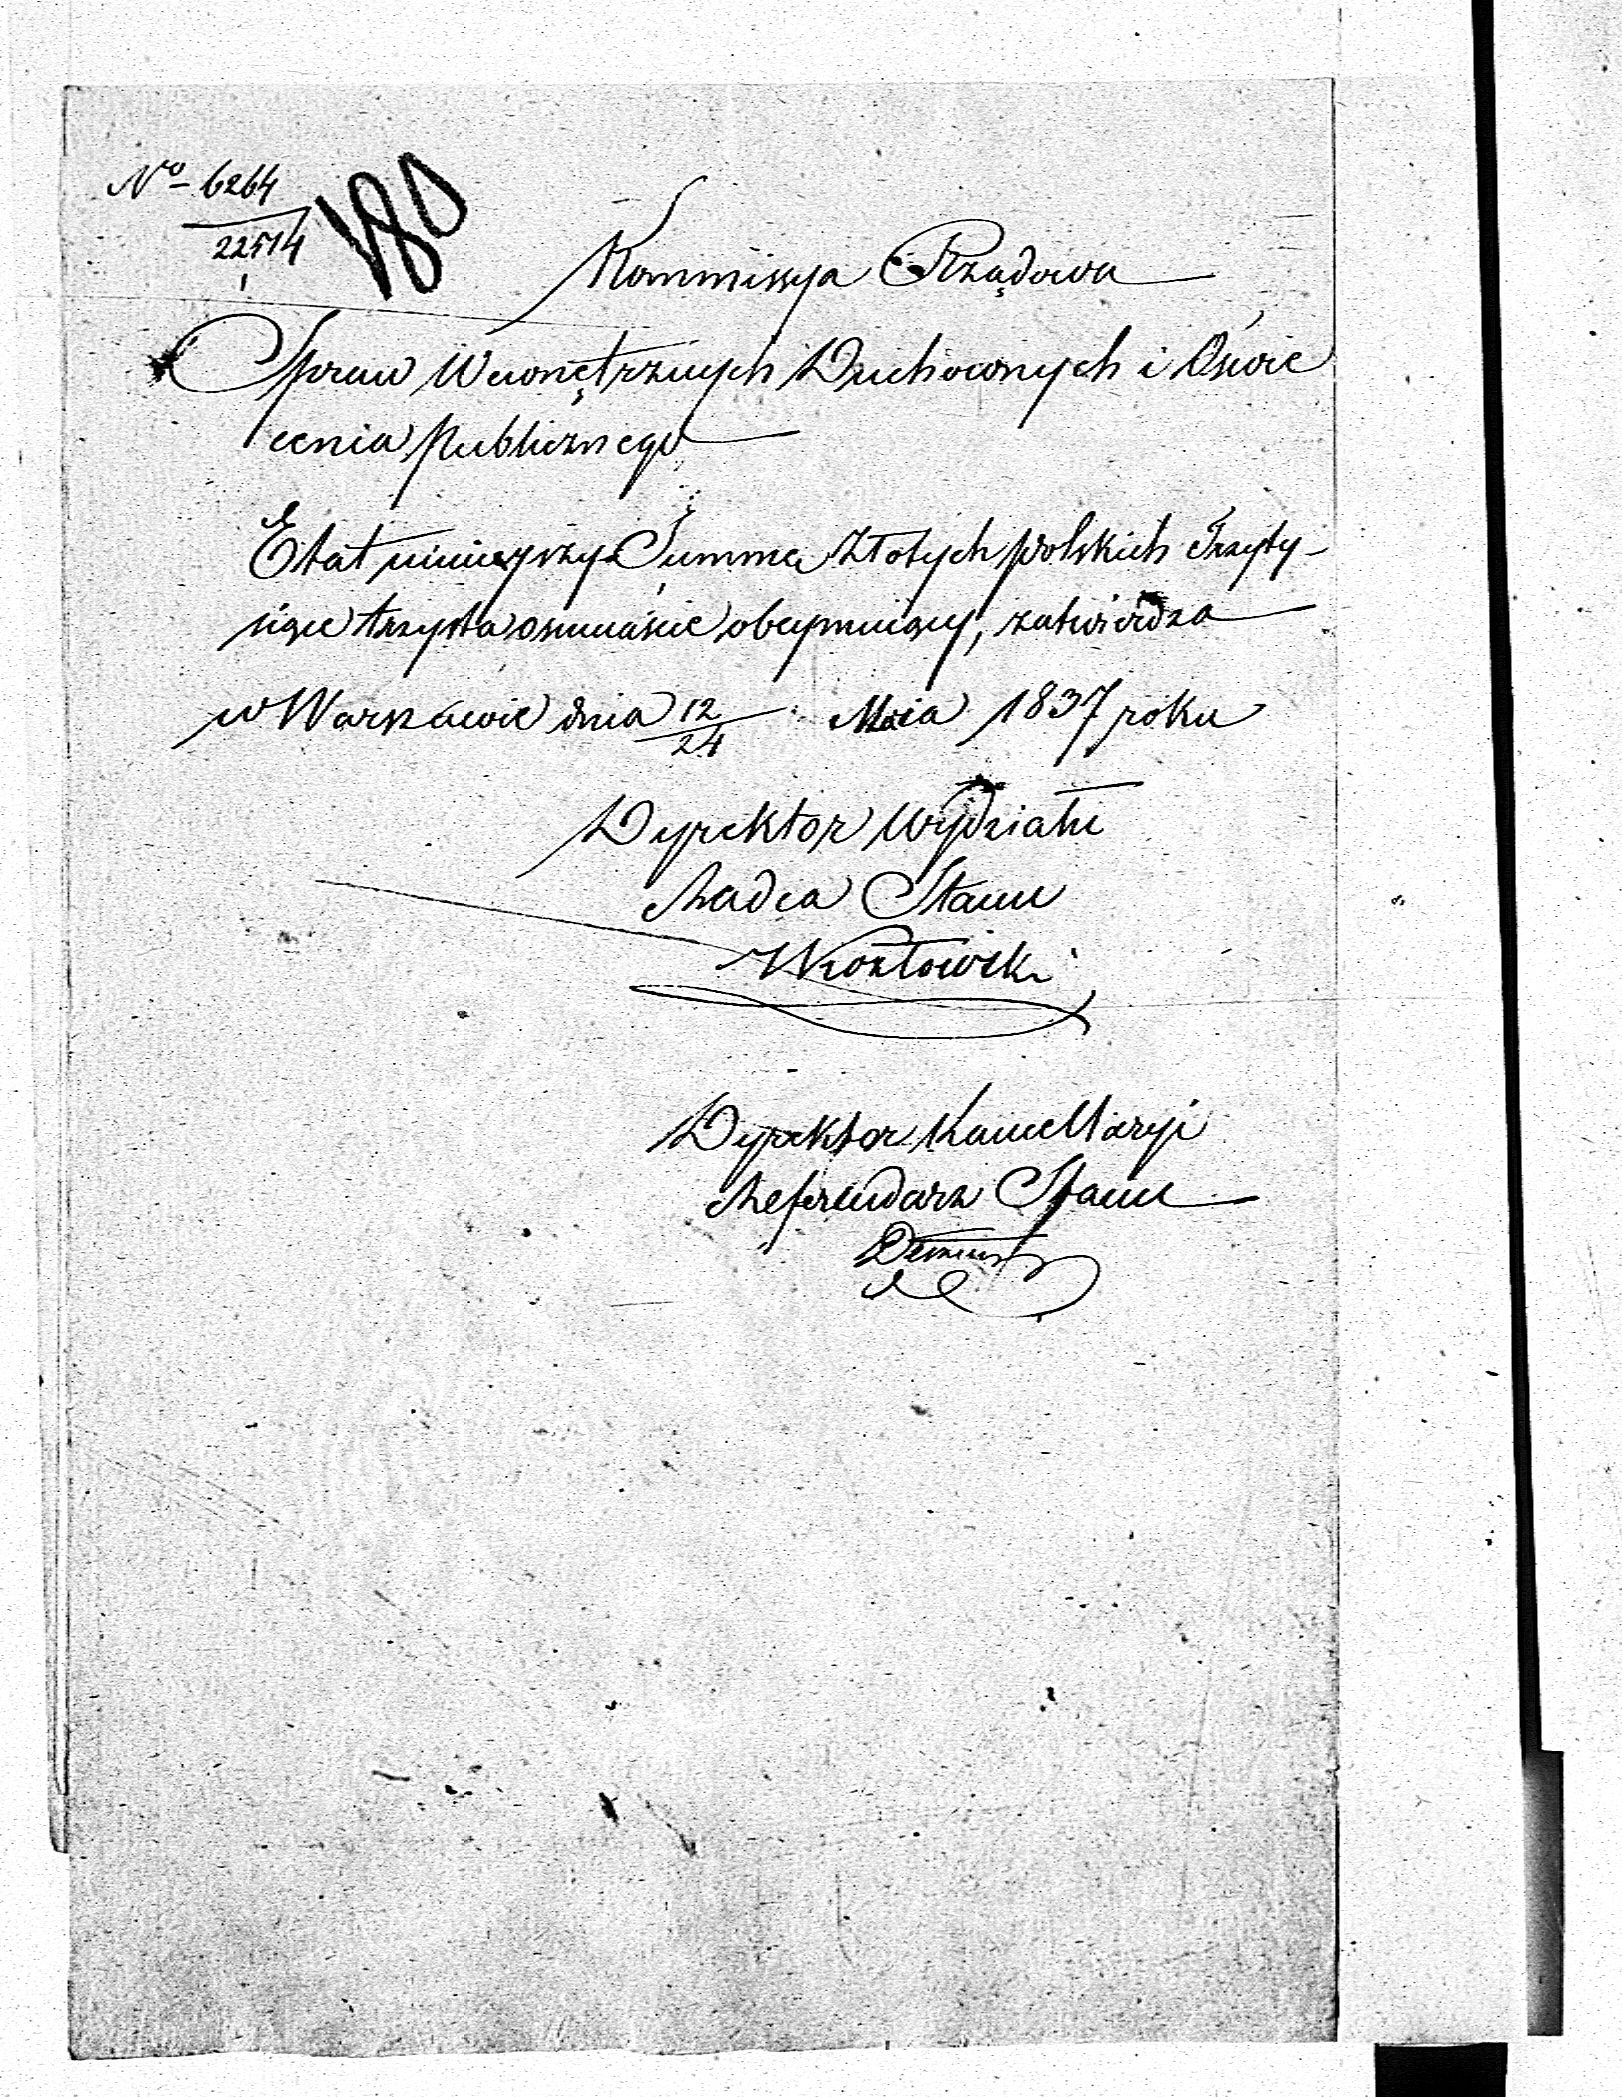 No 6264
22514
180
Kommissya Rządowa
Spraw Wewnętrznych Duchownych i Oświe
cenia Publicznego
Etat ninieyszy Summę Złotych polskich Trzyty-
siące trzysta osmnaście obeymuiący, zatwierdza
w Warszawie dnia 12/24 Maia 1837 roku
Dyrektor Wydziału
Radca Stanu
Dyrektor Kancellaryi
Referendarz Stanu